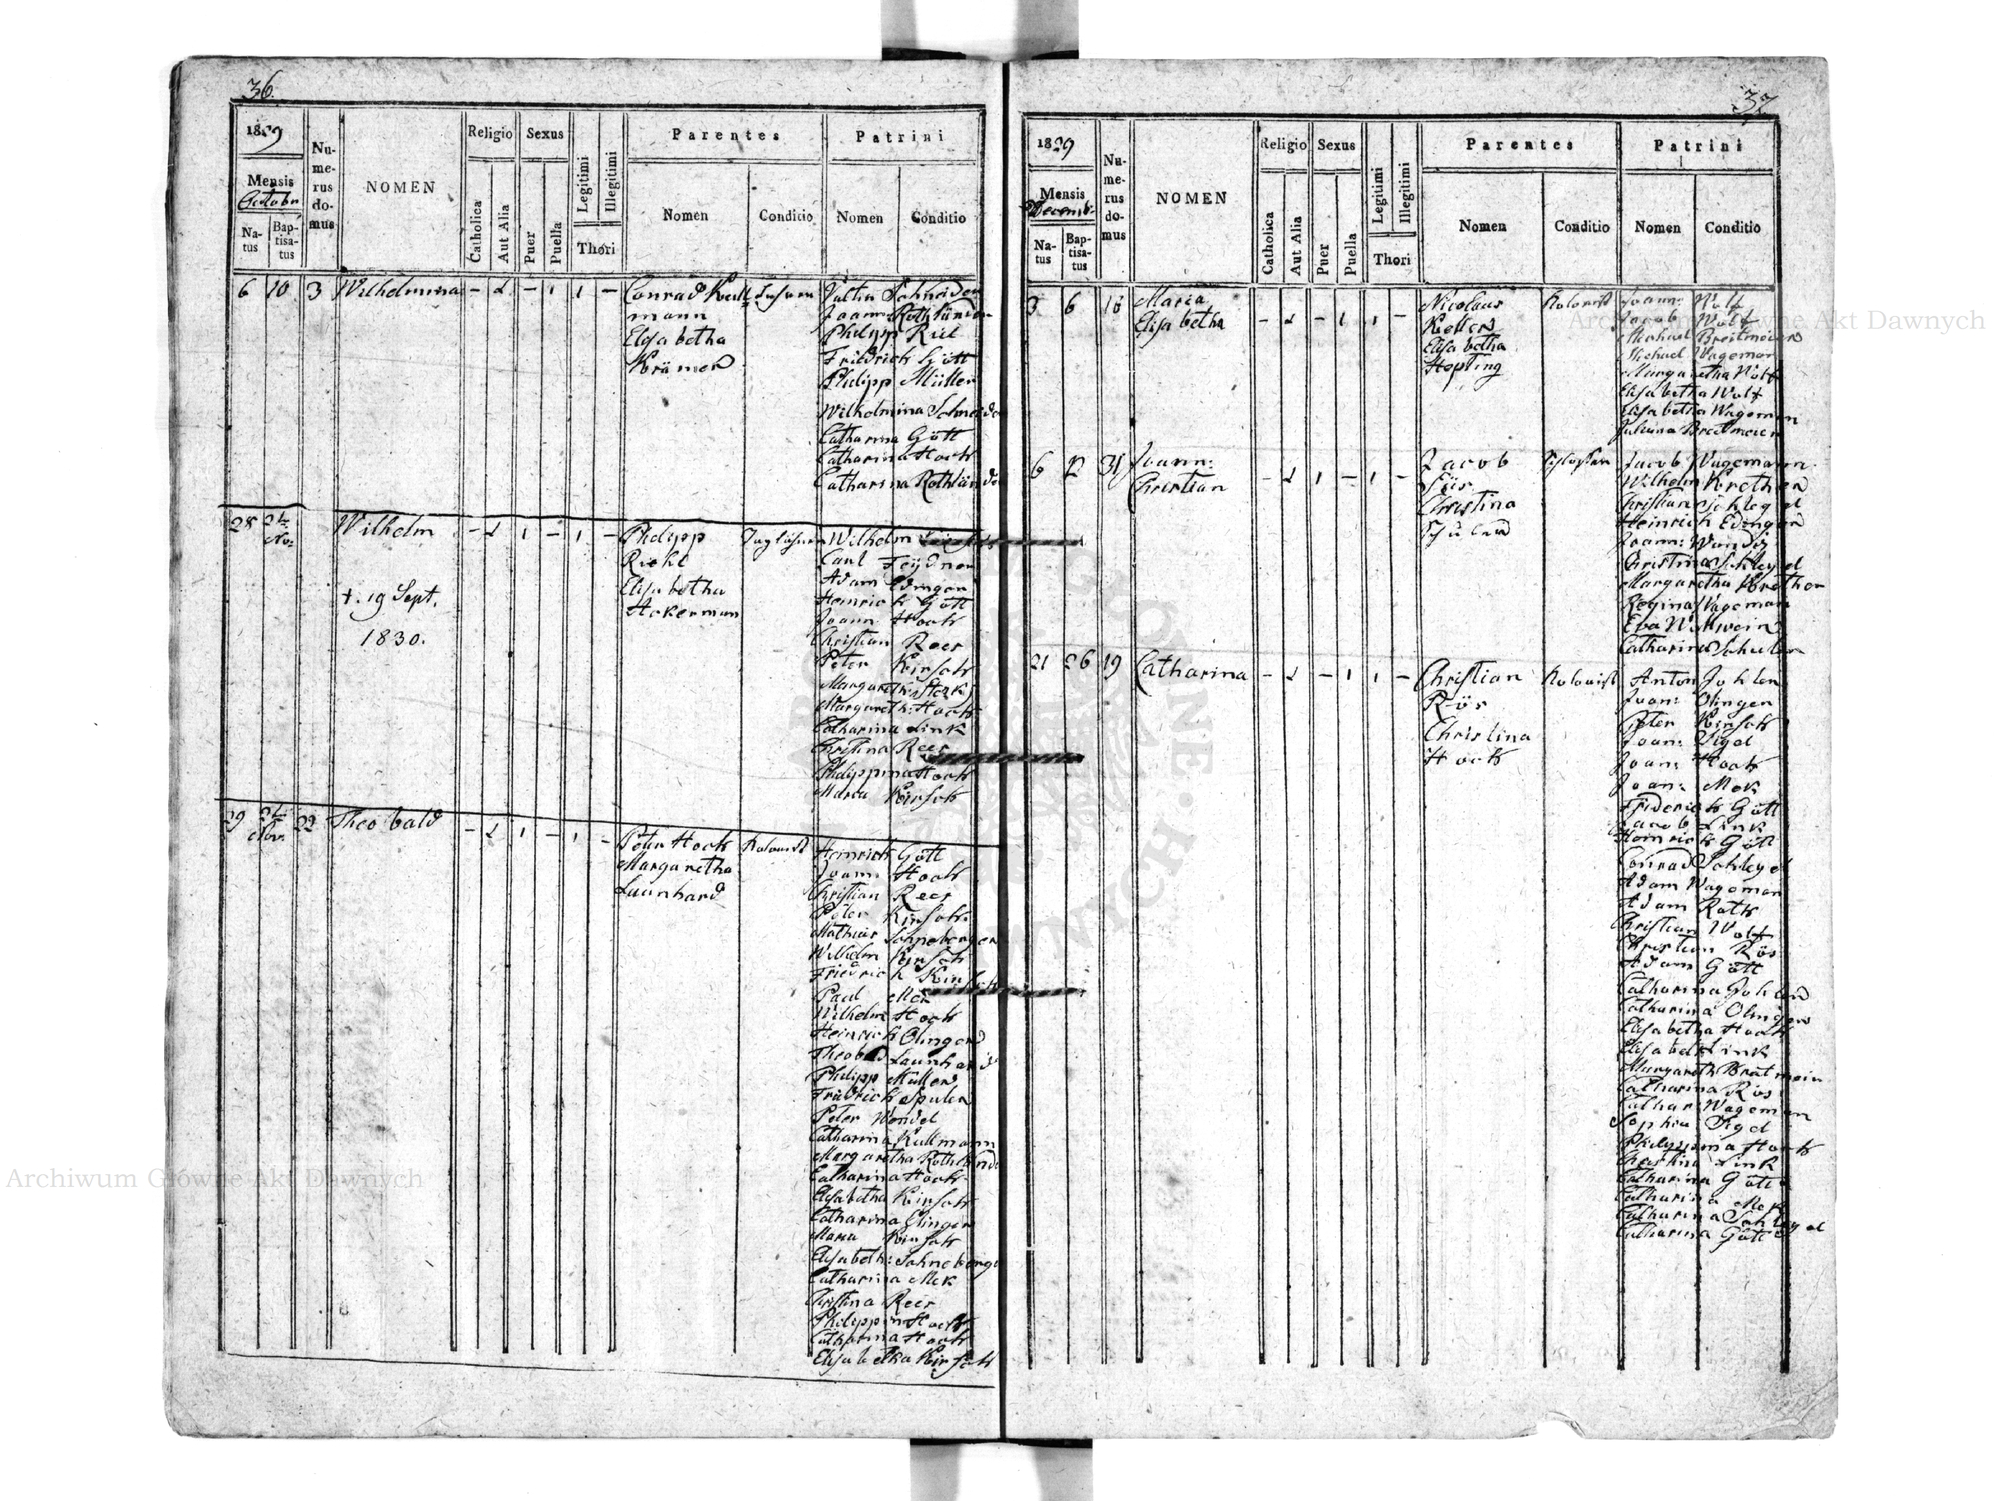 36.
1829
Mensis
October
Na-
tus
Bap-
tisa-
tus
Nu-
me-
rus
do-
mus
NOMEN
Religio
Catholica
Aut Alia
Sexus
Puer
Puella
Legitimi
Illegitimi
Thori
Parentes
Nomen
Conditio
Patrini
Nomen
Conditio
6 10 3 Wilhelmina - 1 - 1 1 -
Conrad Kull=
mann
Elisabetha
Krämer
Valtin Schneider
Joann: Rothländer
Philipp Riel
Friedrich Gött
Philipp Müller
Wilhelmina Schneider
Catharina Gött
Catharina Hoch
Catharina Rothländer
28 24 No: Wilhelm - 1 1 - 1 -
+. 19 Sept.
1830.
Philipp
Riehl
Elisabetha
Ackerman
Taglöhner
Wilhelm
Carl Feydner
Adam Edinger
Heinrich Gött
Joann Hoch
Christian Rees
Peter Kirsch
Margareth: Sterk
Margareth: Hoch
Catharina Link
Christina Rees
Philippina Hoch
Maria Kirsch
29 24 Nov. 22 Theobald - 1 1 - 1 -
Peter Hoch
Margaretha
Launhard
Kolonist
Heinrich Gött
Joann: Hoch
Christian Rees
Peter Kirsch
Mathias Schneberger
Wilhelm Kirsch
Friedrich Kirsch
Paul Mek
Wilhelm Hoch
Heinrich Olinger
Theobald Launhard
Philipp Müller
Fridrich Spuler
Peter Wendel
Catharina Kullmann
Margaretha Rothländer
Catharina Hoch
Elisabetha Kirsch
Catharina Olinger
Maria Kirsch
Elisabeth: Schneberger
Catharina Mek
Christina Rees
Philippin Hoch
Catharina Hoch
Elisabetha Kirsch
37
1829
Mensis
Decemb:
Na-
tus
Bap-
tisa-
tus
Nu-
me-
rus
do-
mus
NOMEN
Religio
Catholica
Aut Alia
Sexus
Puer
Puella
Legitimi
Illegitimi
Thori
Parentes
Nomen
Conditio
Patrini
Nomen
Conditio
3 6 16 Maria
Elisabetha - 1 - 1 1 -
Nicolaus
Kellers
Elisabetha
Hepting
Kolonist
Joann: Wolf
Jacob Wolf
Michael Breitmeier
Michael Wageman
Margaretha Wolf
Elisabetha Wolf
Elisabetha Wageman
Juliana Breitmeier
6 12 31 Joann:
Christian - 1 1 - 1 -
Jacob
Christina
Schuler
Schlosser
Jacob Wagemann
Wilhelm Krether
Christian Schlegel
Heinrich Edinger
Joann: Wendel
Christina Schlegel
Margaretha Krether
Regina Wageman
Eva Wollwein
Catharina Schuler
21 26 19 Catharina - 1 - 1 1 -
Christian
Rös
Christina
Hoch
Kolonist
Anton Johler
Joan: Olinger
Peter Kirsch
Joan: Sigel
Joan: Hoch
Joan: Mek
Friderich Gött
Jacob Link
Heinrich Gött
Conrad Schlegel
Adam Wageman
Adam Roth
Christian Wolf
Christian Rös
Adam Gött
Catharina Johler
Catharina Olinger
Elisabetha Hoch
Elisabet Link
Margareth Bratmeier
Catharina Rös
Cathar: Wageman
Sophia Sigel
Philippina Hoch
Christina Link
Catharina Gött
Catharina Mek
Catharina Schlegel
Catharina Gött
Archiwum Główne Akt Dawnych
Archiwum Główne Akt Dawnych